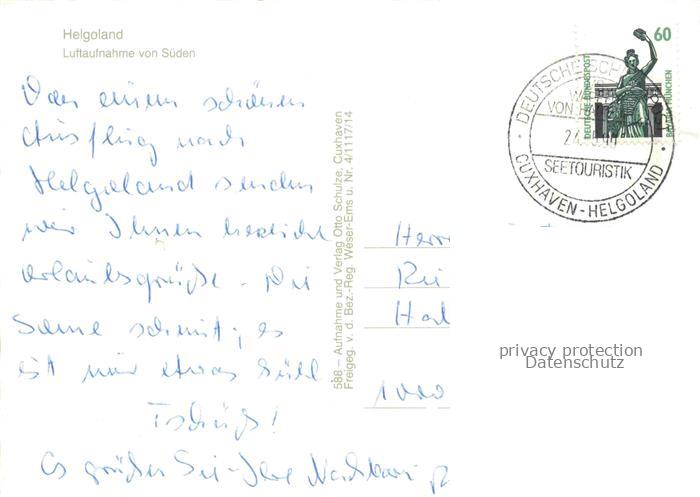 Helgoland
Luftaufnahme von Süden
Von einem schönen
Ausflug nach
Helgoland senden
wir Ihnen herzliche
Urlaubsgrüße. Die
Sonne scheint, es
ist nur etwas kühl
Tschüß!
Es grüßen Sie Ihre Nachbarn
588 – Aufnahme und Verlag Otto Schulze, Cuxhaven
Freigeg. v. d. Bez.-Reg. Weser-Ems u. Nr. 4/1117/14
Herr
Rei
Hal
1000
60
DEUTSCHE BUNDESPOST
BAVARIA MÜNCHEN
DEUTSCHE SCH
VON
SEETOURISTIK
CUXHAVEN - HELGOLAND
privacy protection
Datenschutz